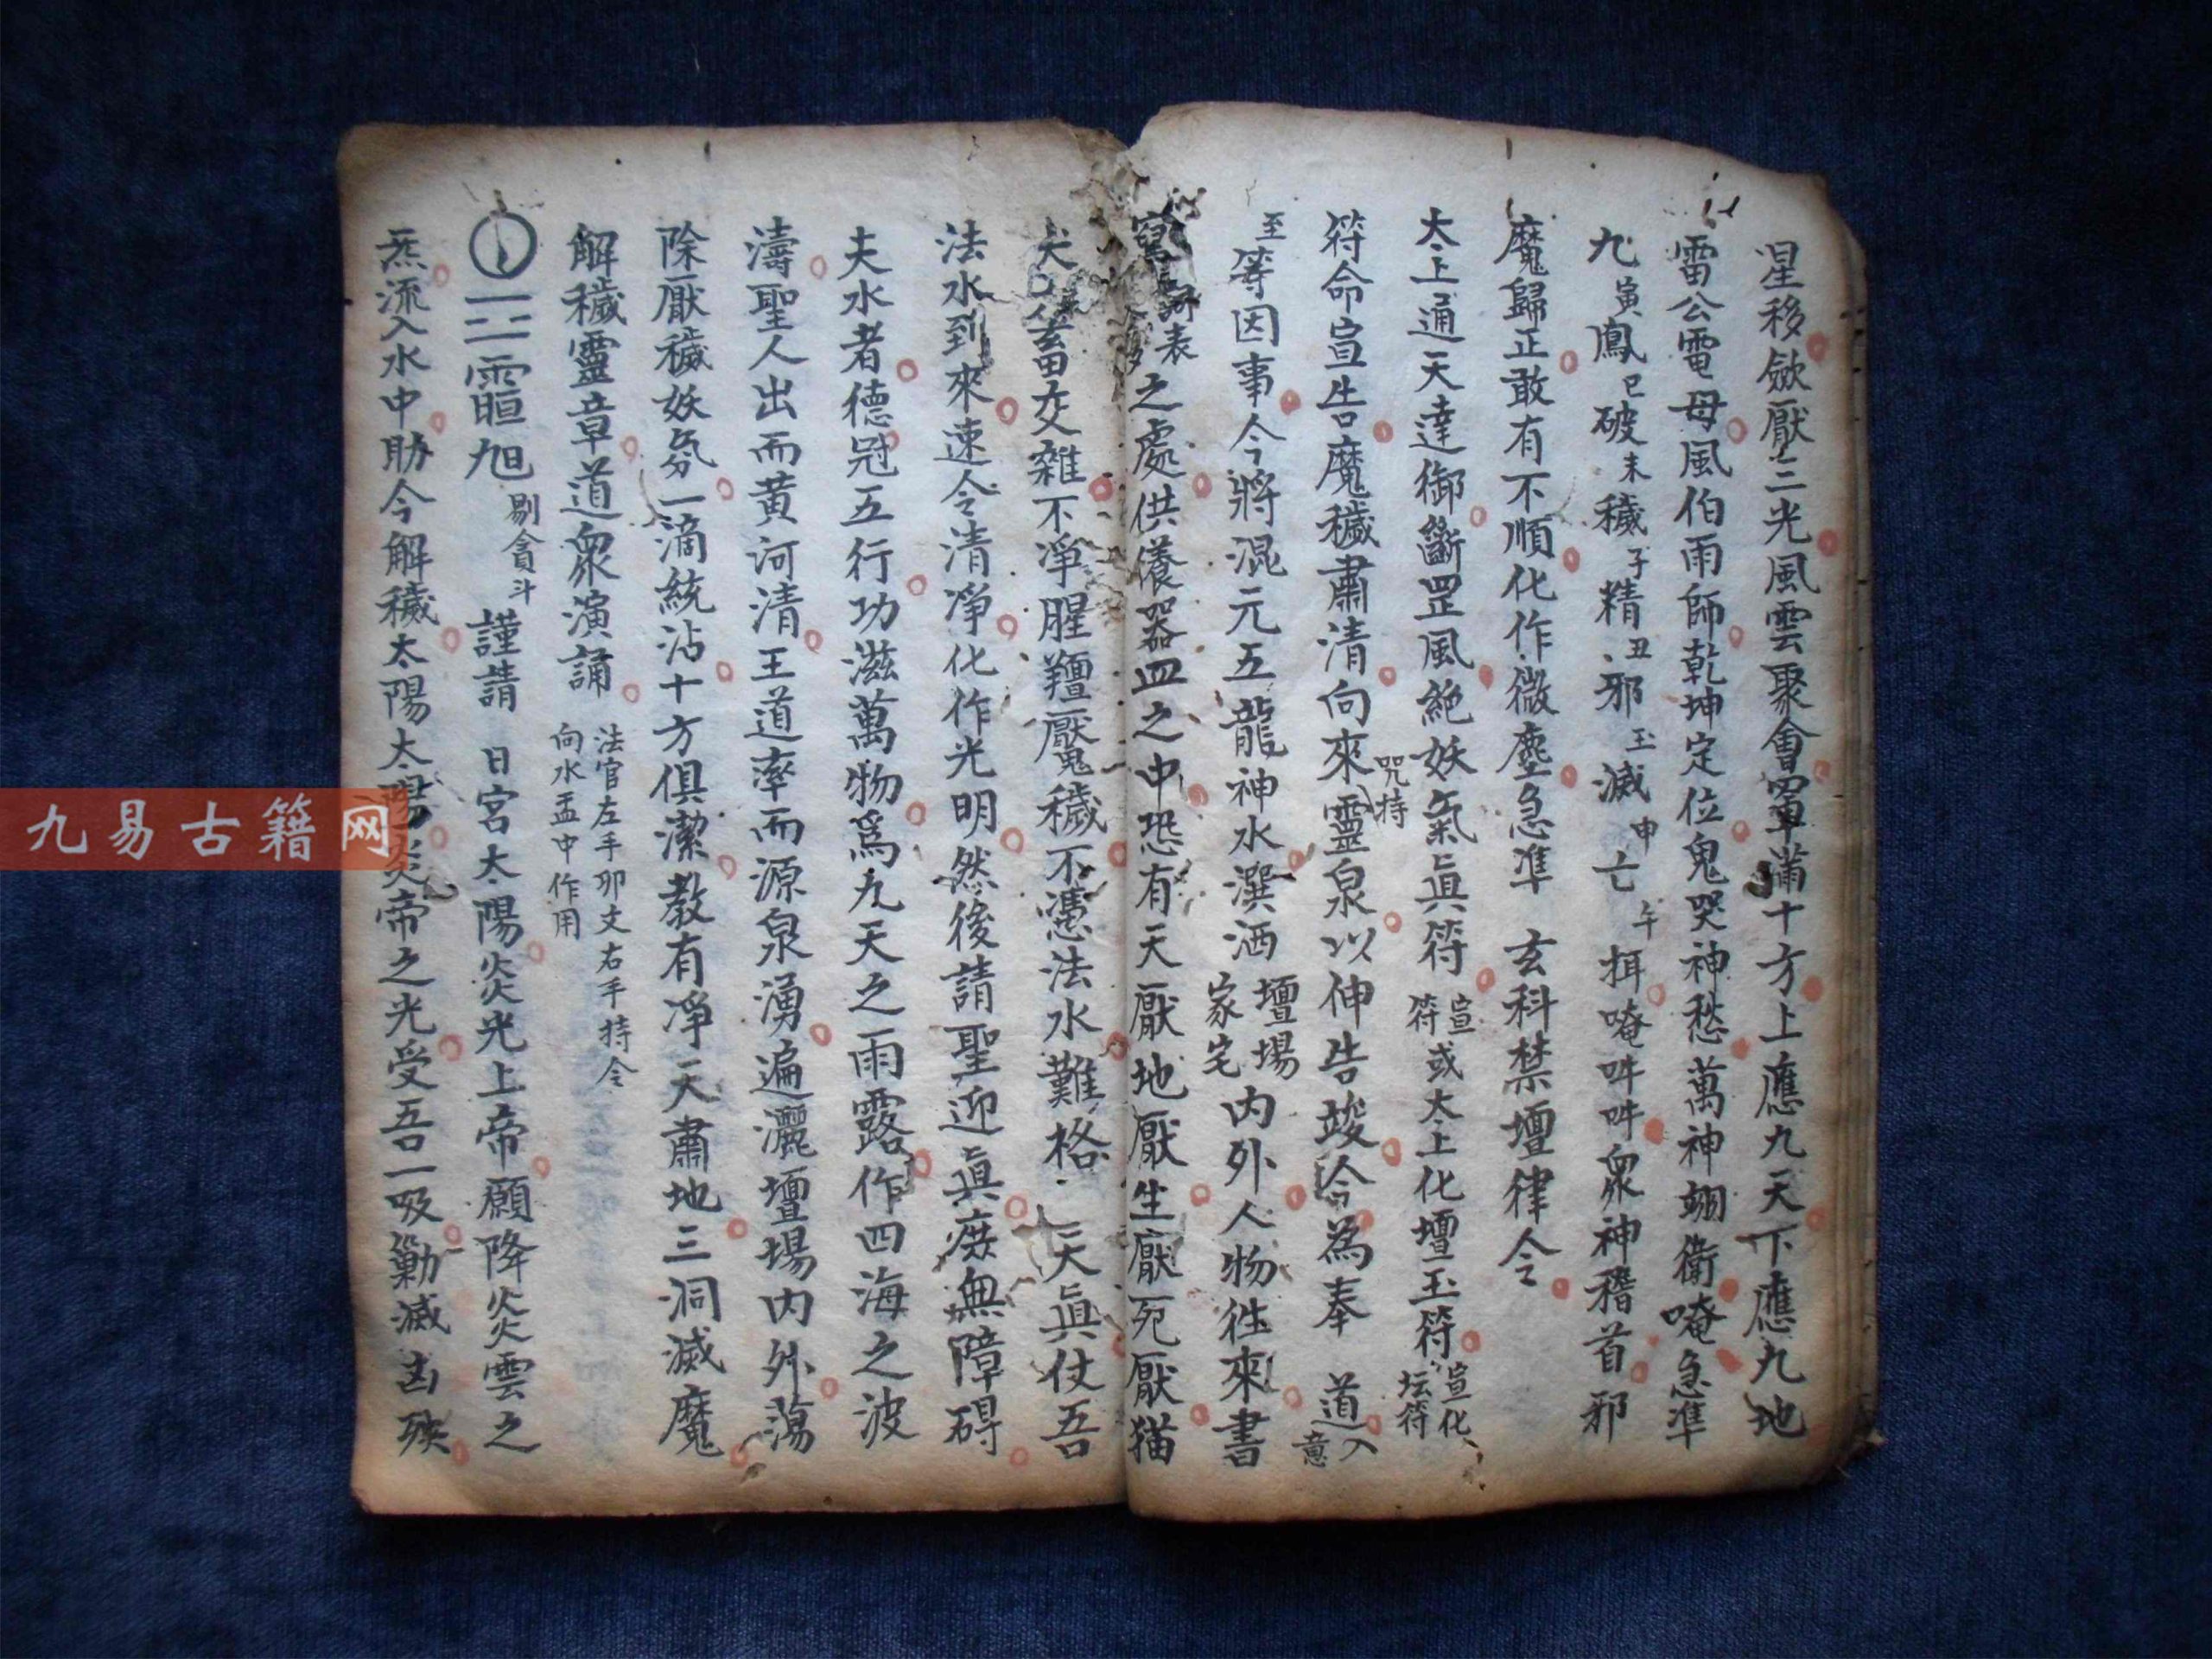 星移歛厭三光風雲聚會罩滿十方上應九天下應九地
雷公電母風伯雨師乾坤定位鬼哭神愁萬神翊衛唵急準
九寅鳳巳破未穢子精丑邪玉滅申亡午揖唵吽吽衆神稽首邪
魔歸正敢有不順化作微塵急準 玄科禁壇律令
太上通天達御斷罡風絶妖氣眞符宣符或太上化壇玉符宣化坛符
符命宣告魔穢肅清向來咒持靈泉以伸告竣今為奉 道入意
至等因事今將混元五龍神水潠洒壇場家宅内外人物徃來書
寫表之處供儀器皿之中恐有天厭地厭生厭死厭猫
犬畜交雜不淨腥羶厭穢不憑法水難格天眞仗吾
法水到來速令清淨化作光明然後請聖迎眞無障碍
夫水者德冠五行功滋萬物爲九天之雨露作四海之波
濤聖人出而黄河清王道率而源泉湧遍灑壇場内外蕩
除厭穢妖氛一滴統沾十方俱潔教有淨天肅地三洞滅魔
解穢靈章道衆演誦 法官左手卯文右手持令向水盂中作用
䨓旭 剔貪斗 謹請 日宮太陽炎光上帝願降炎雲之
炁流入水中助今解穢太陽太陽炎帝之光受吾一吸勦滅凶殃
九易古籍网